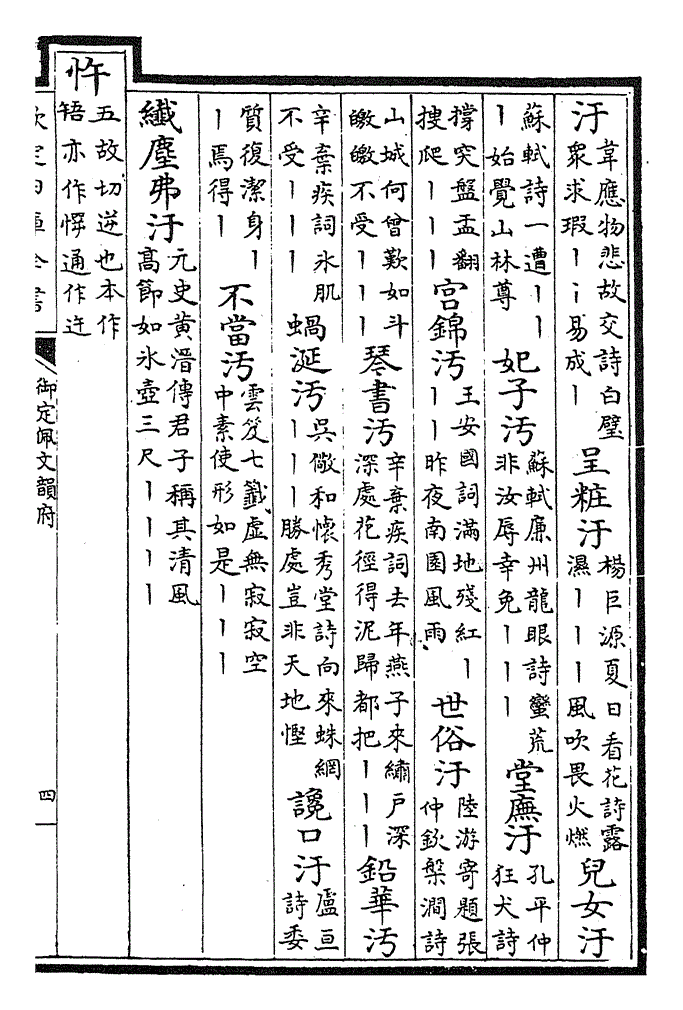 汙韋應物悲故交詩白璧衆求瑕丨丨易成丨呈粧汙楊巨源夏日看花詩露濕丨丨丨風吹畏火燃兒女汙
蘇軾詩一遭丨丨丨始覺山林尊妃子汚蘇軾廉州龍眼詩蠻荒非汝辱幸免丨丨丨堂廡汙孔平仲狂犬詩
撐突盤盂翻搜爬丨丨丨宮錦汚王安國詞滿地殘紅丨丨丨昨夜南園風雨世俗汙陸游寄題張仲欽槃澗詩
山城何曾歎如斗皦皦不受丨丨丨琴書汚辛棄疾詞去年燕子來繡戶深深處花徑得泥歸都把丨丨丨鉛華汚
辛棄疾詞氷肌不受丨丨丨蝸涎汚吳儆和懷秀堂詩向來蛛網丨丨丨勝處豈非天地慳讒口汙盧亘詩委
質復潔身丨丨焉得丨不當汚雲笈七籤虛無寂寂空中素使形如是丨丨丨
纖塵弗汙元史黃溍傳君子稱其清風高節如氷壺三尺丨丨丨丨
忤五故切逆也本作啎亦作愕通作迕
欽定四庫全書
御定佩文韻府
四